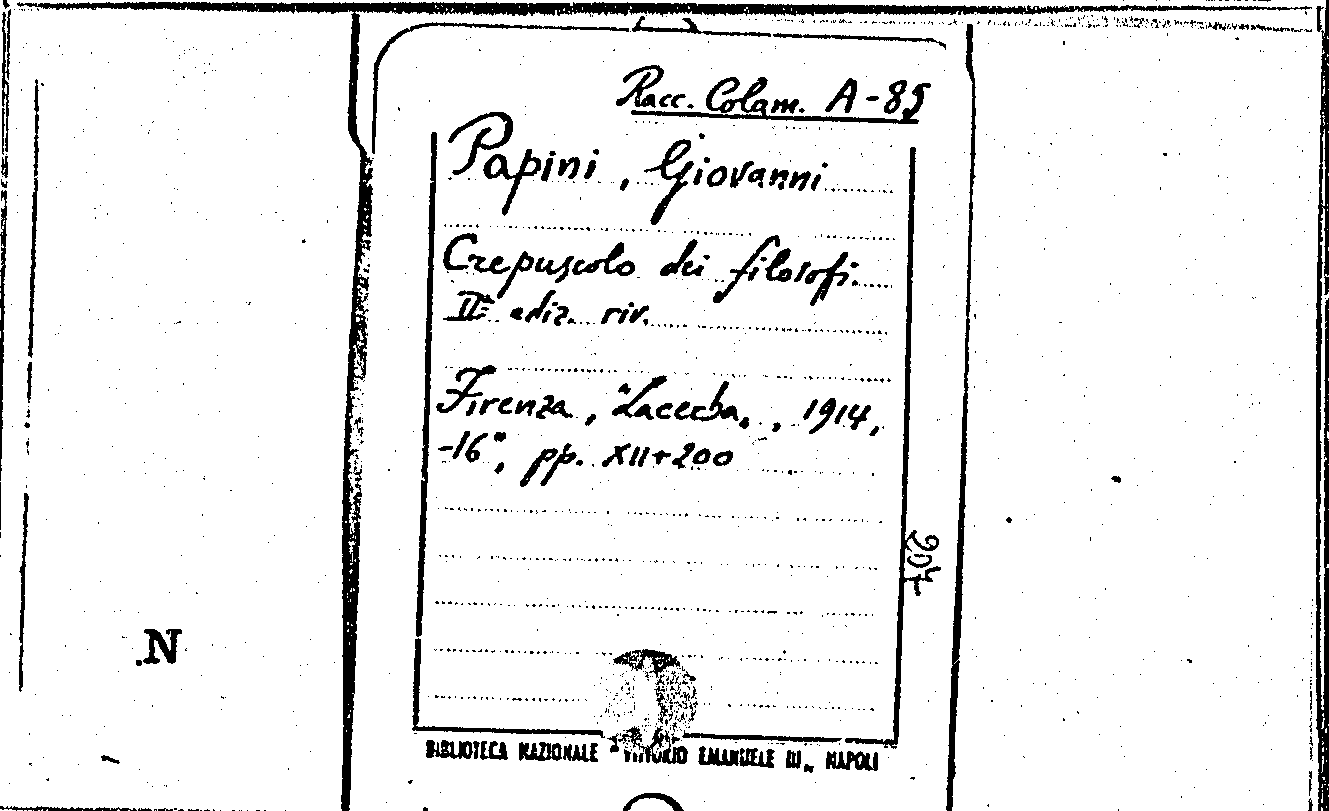 Racc. Colam. A-85
Papini, Giovanni
Crepuscolo dei filosofi.
IIª ediz. riv.
Firenza, "Lacerba", 1914,
-16°, pp. XII+200
207
N
BIBLIOTECA NAZIONALE "VITTORIO EMANUELE III„ NAPOLI